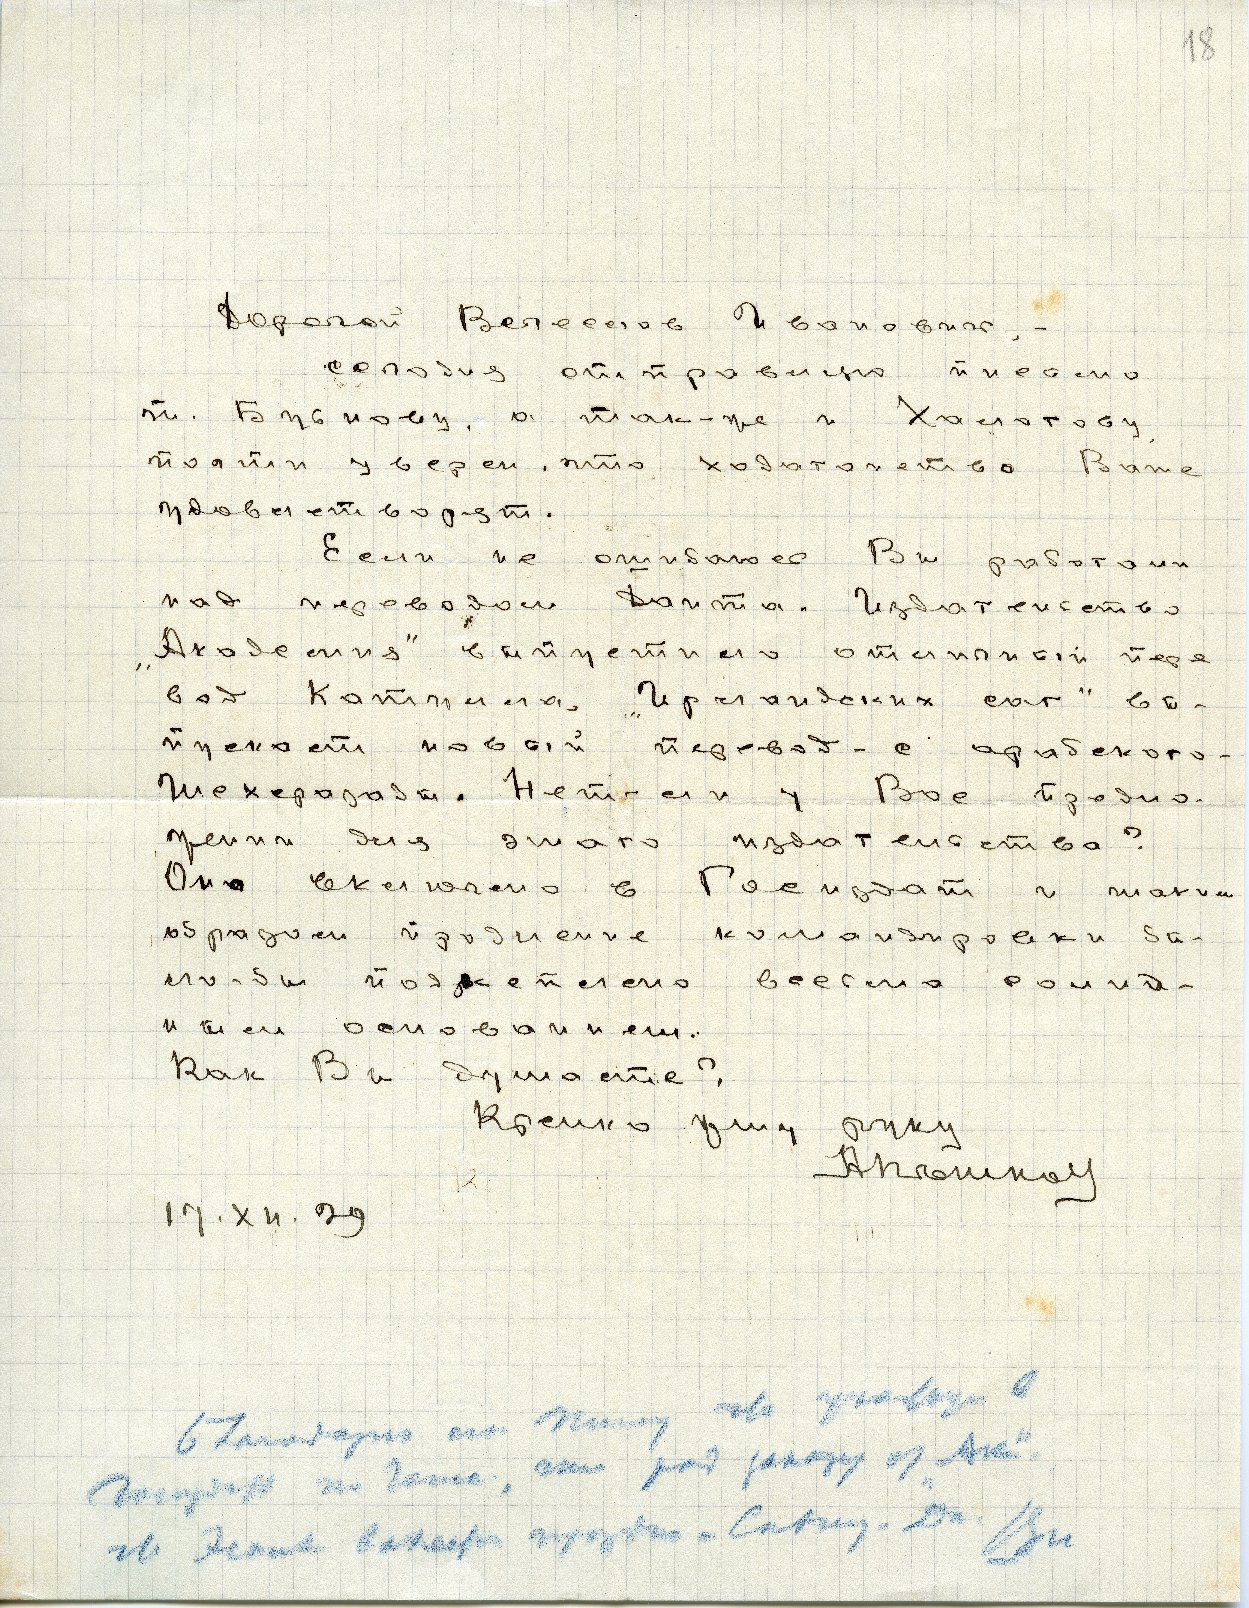 18
Дорогой Вячеслав Иванович, -
сегодня отправил письмо
т. Бубнову, а так-же и Халатову,
почти уверен, что ходатайство Ваше
удовлетворят.
Если не ошибаюсь Вы работали
над переводом Данта. Издательство
„Академия" выпустило отличный пере
вод Катулла, „Ирландских саг" вы-
пускает новый перевод - с арабского -
Шехеразады. Нет-ли у Вас предло-
жения для этого издательства?
Оно включено в Госиздат и таким
образом продление командировки бы-
ло-бы подкреплено весьма солид-
ным основанием.
Как Вы думаете?
Крепко жму руку
А Пешков
17.XII.29
Благодарю